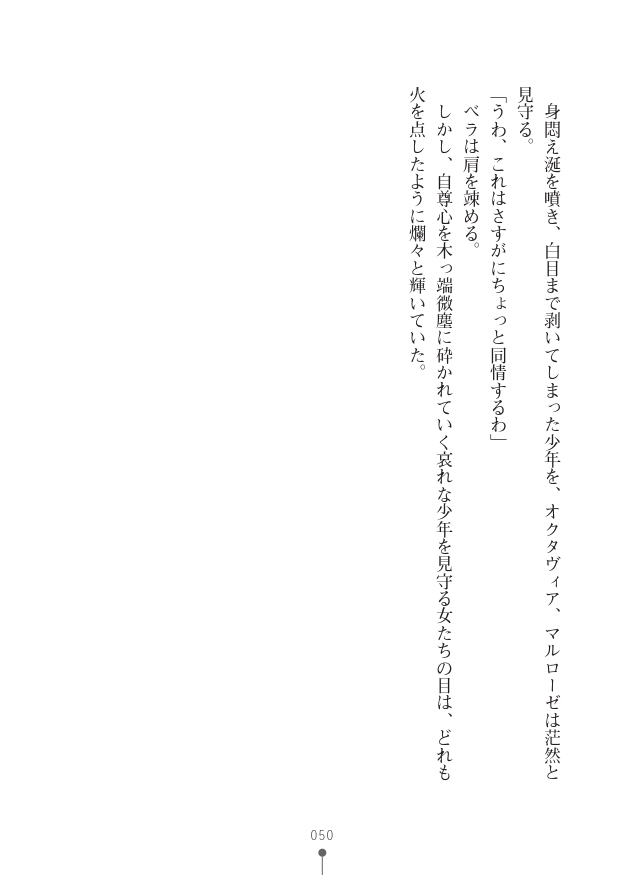 身悶え涎を噴き、白目まで剥いてしまった少年を、オクタヴィア、マルローゼは茫然と
見守る。
「うわ、これはさすがにちょっと同情するわ」
　ベラは肩を竦める。
　しかし、自尊心を木っ端微塵に砕かれていく哀れな少年を見守る女たちの目は、どれも
火を点したように爛々と輝いていた。
050